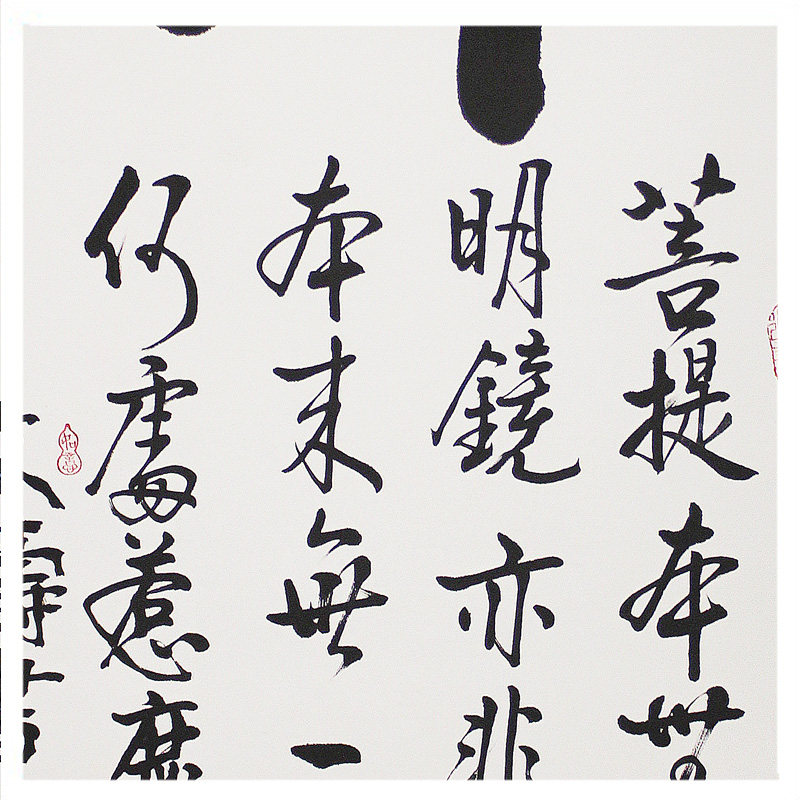 菩提本無
明鏡亦非
本来無一
何處惹塵